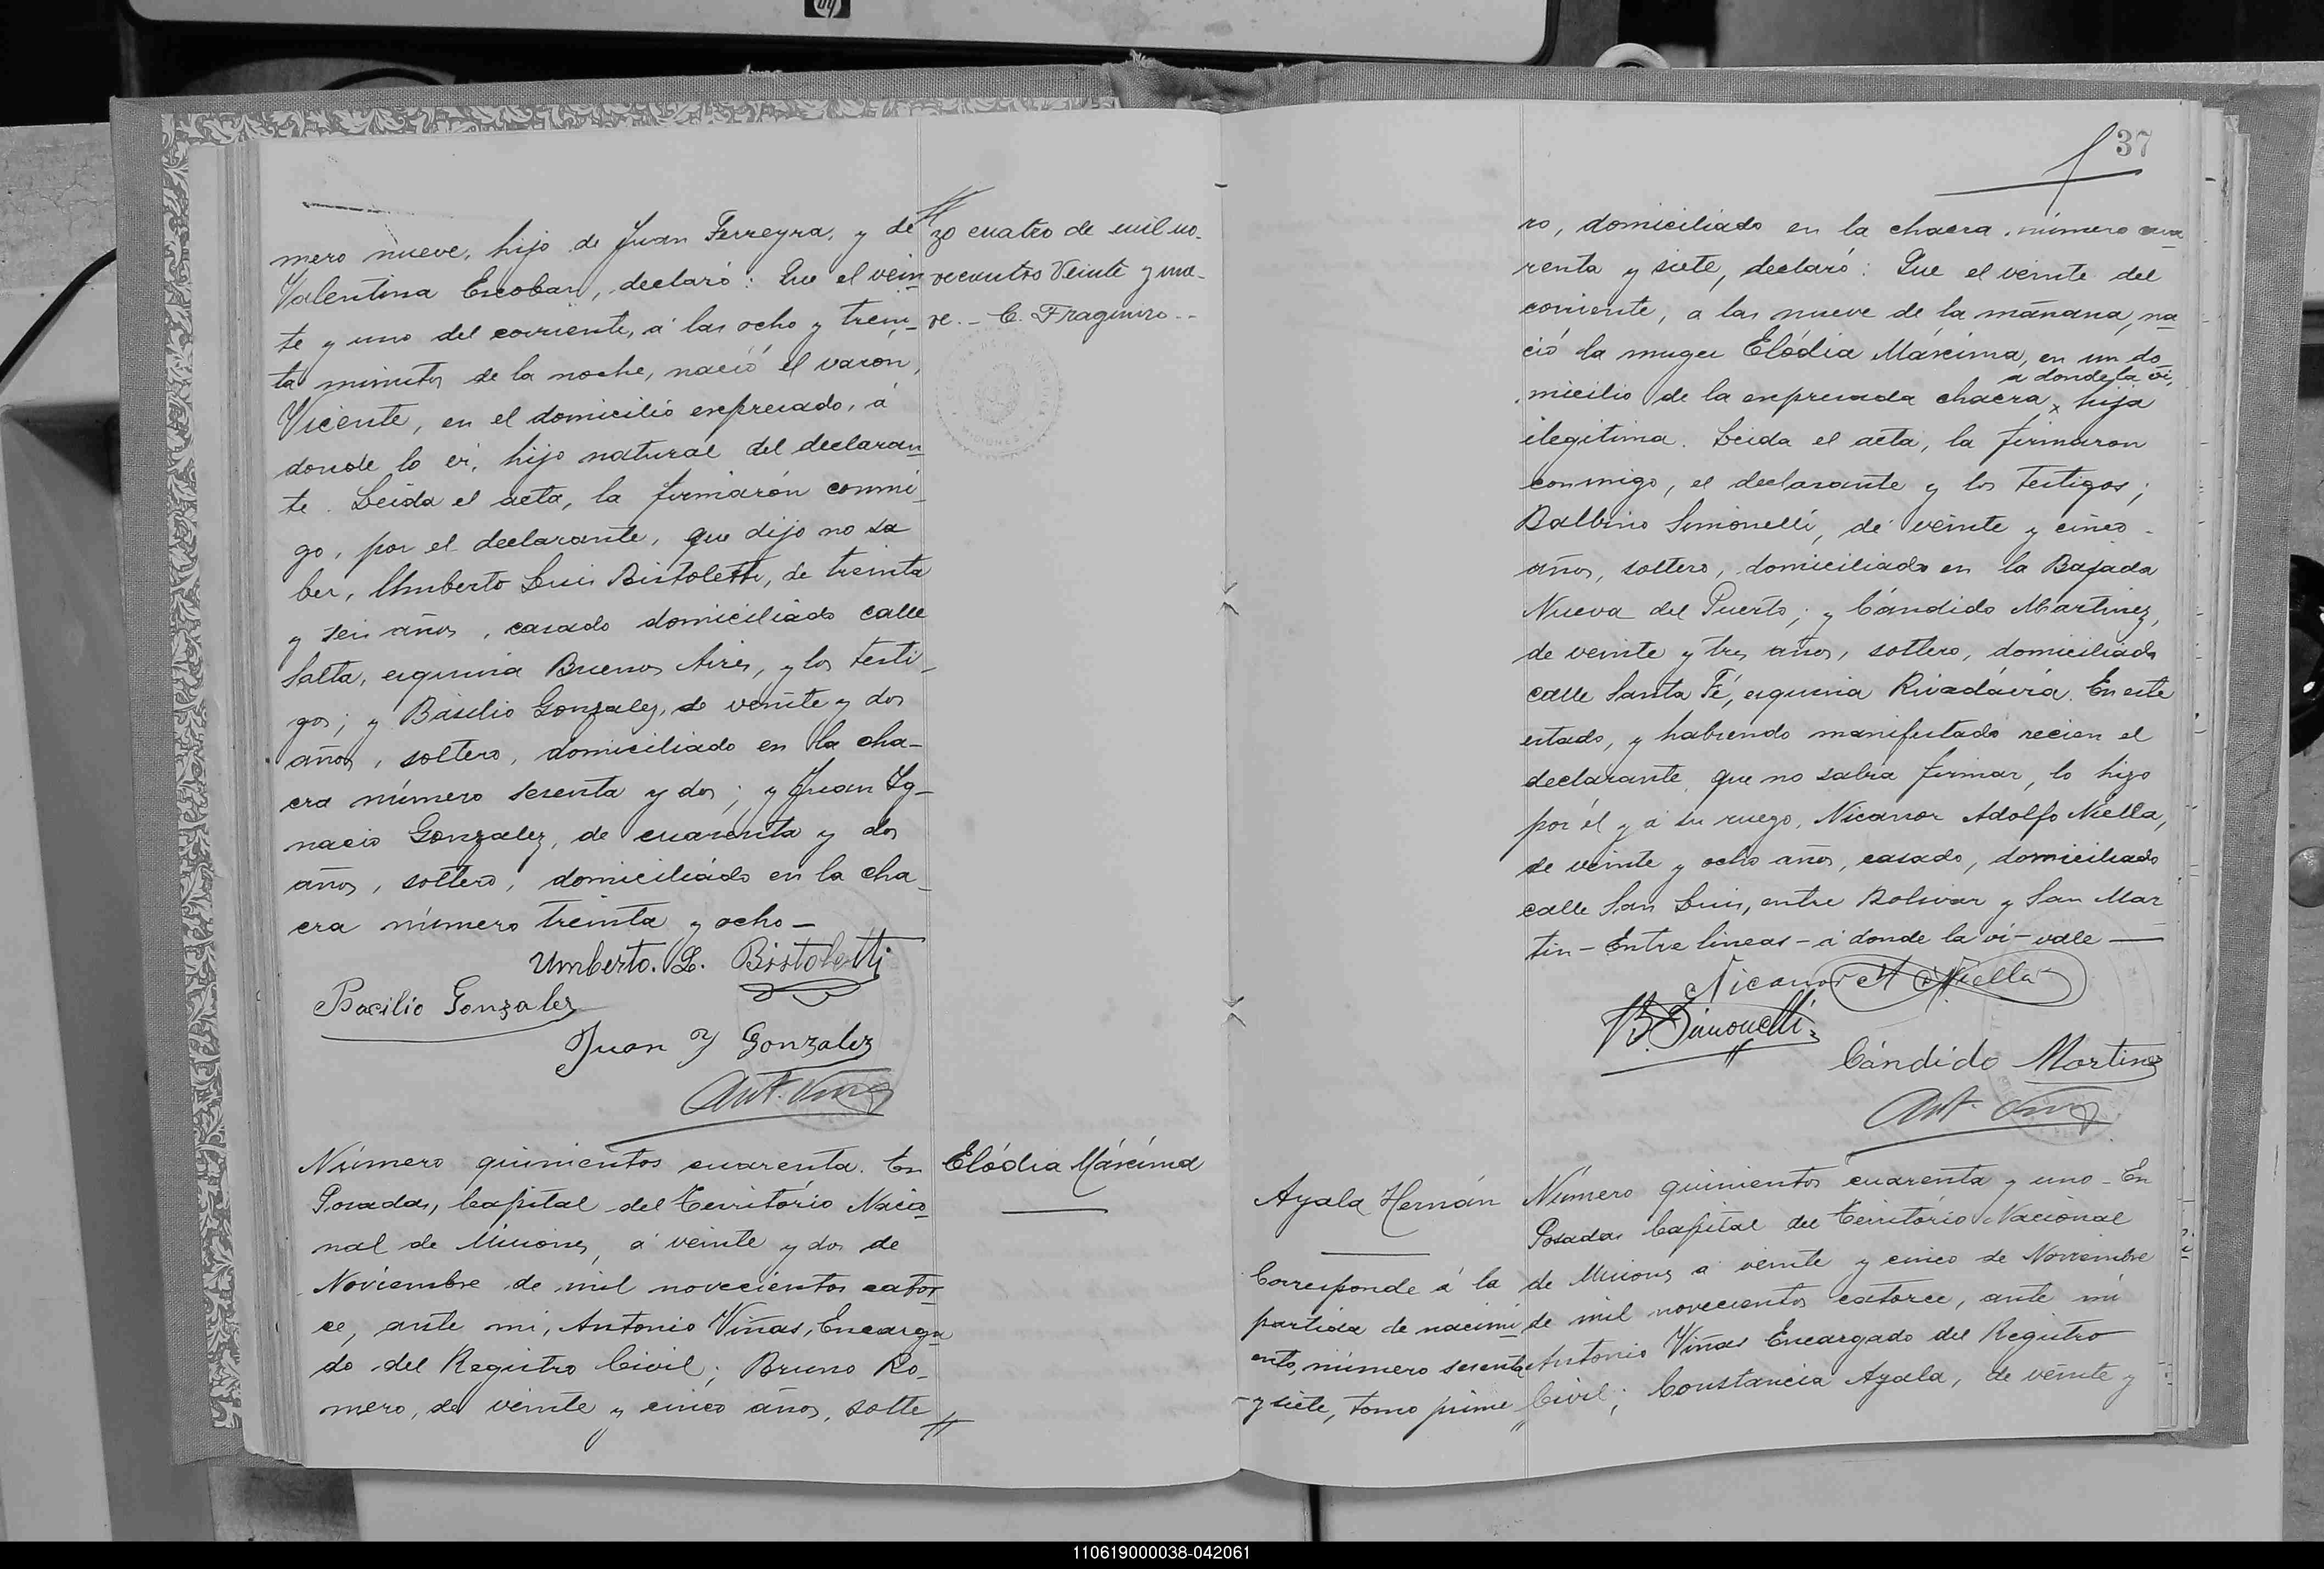 hp
mero nueve, hijo de Juan Ferreyra, y de
Valentina Escobar, declaró: Que el vein
te y uno del corriente, á las ocho y trein
ta minutos de la noche, nació el varón,
Vicente, en el domicilio expresado, á
donde lo ví, hijo natural del declaran
te. Leida el acta, la firmarón conmi
go, por el declarante, que dijo no sa
ber, Umberto Luis Bistoletti, de treinta
y seis años, casado domiciliado calle
Salta, esquina Buenos Aires, y los testi
gos; y Basilio Gonzalez, de veinte y dos
años, soltero, domiciliado en la cha-
cra número sesenta y dos; y Juan Ig-
nacio Gonzalez, de cuarenta y dos
años, soltero, domiciliádo en la cha-
cra número treinta y ocho—
Umberto. L. Bistoletti
Bacilio Gonzalez
Juan Y Gonzalez
Ant. Viñas
zo cuatro de mil no-
vecientos Veinte y nue-
ve.-
Número quinientos cuarenta. En
Posadas, Capital del Território Nacio
nal de Misiones, á veinte y dos de
Noviembre de mil novecientos cator
ce, ante mi, Antonio Viñas, Encarga
do del Registro Civil; Bruno Ro-
mero, de veinte y cinco años, solte
Elódia Máxima
37
ro, domiciliado en la chacra número cua
renta y siete, declaró: Que el veinte del
corriente, a las nueve de la mañana, na
ció la muger Elódia Máxima, en un do
a donde la ví,
micilio de la expresada chacra x hija
ilegitima. Leida el acta, la firmaron
conmigo, el declarante y los testigos;
Balbino Simonelli, de veinte y cinco
años, soltero, domiciliado en la Bajada
Nueva del Puerto; y Cándido Martinez,
de veinte y tres años, soltero, domiciliado
calle Santa Fé, esquina Rivadávia. En este
estado, y habiendo manifestado recien el
declarante que no sabia firmar, lo hizo
por él y á su ruego, Nicanor Adolfo Niella,
de veinte y ocho años, casado, domiciliado
calle San Luis, entre Bolivar y San Mar
tin - Entre lineas - á donde la ví - vale —
Nicanor A Niella
B. Simonelli
Cándido Martinez
Ant. Viñas
Ayala Hernán
Corresponde á la
partida de nacimi
ento, número sesenta
y siete, tomo prime
Número quinientos cuarenta y uno - En
Posadas Capital del Território Nacional
de Misiones a veinte y cinco de Noviembre
de mil novecientos catorce, ante mi
Antonio Viñas Encargado del Registro
Civil; Constancia Ayala, de veinte y
110619000038-042061